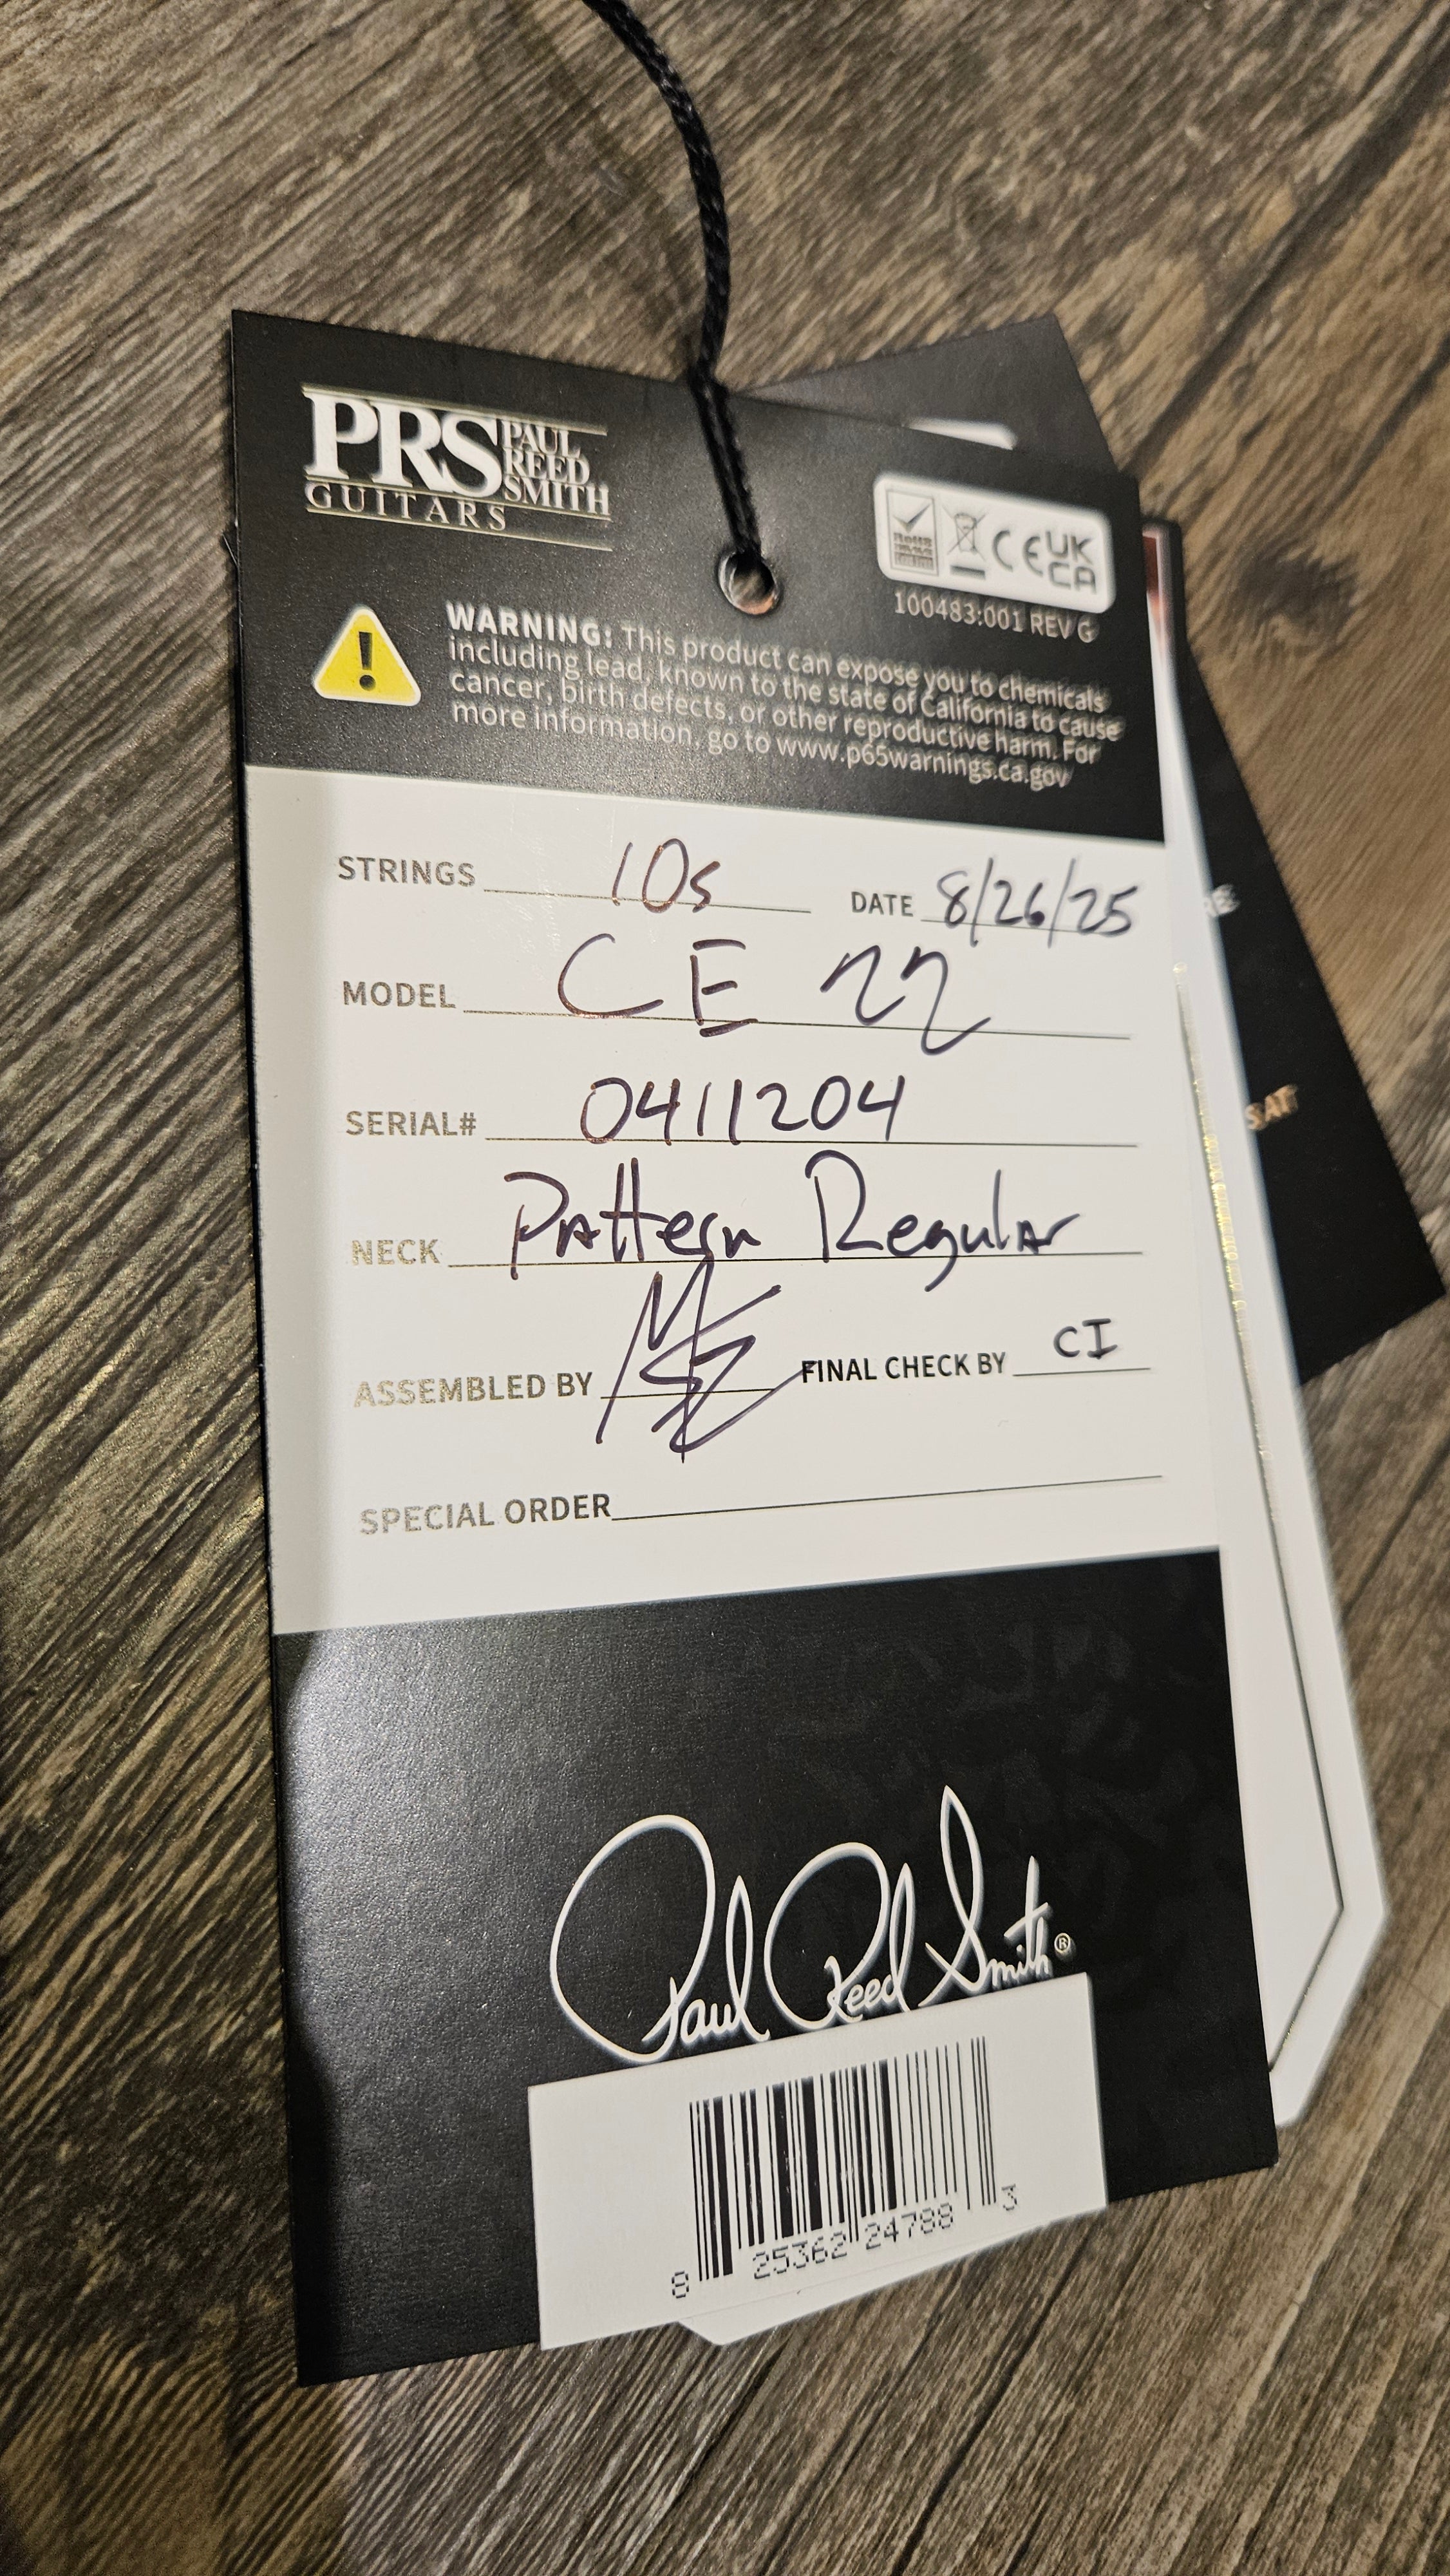 PRS PAUL
REED
SMITH
GUITARS
CE UK
CA
100483:001 REV G
WARNING: This product can expose you to chemicals
including lead, known to the state of California to cause
cancer, birth defects, or other reproductive harm. For
more information, go to www.p65warnings.ca.gov
STRINGS 10s DATE 8/26/25
MODEL CE 22
SERIAL# 0411204
NECK Pattern Regular
ASSEMBLED BY FINAL CHECK BY CI
SPECIAL ORDER
Paul Reed Smith®
8 25362 24788 3